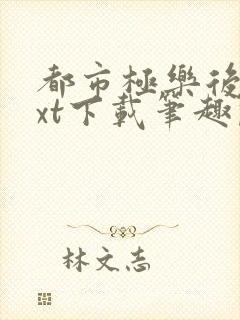 都市極樂後
xt下載筆趣
林文志